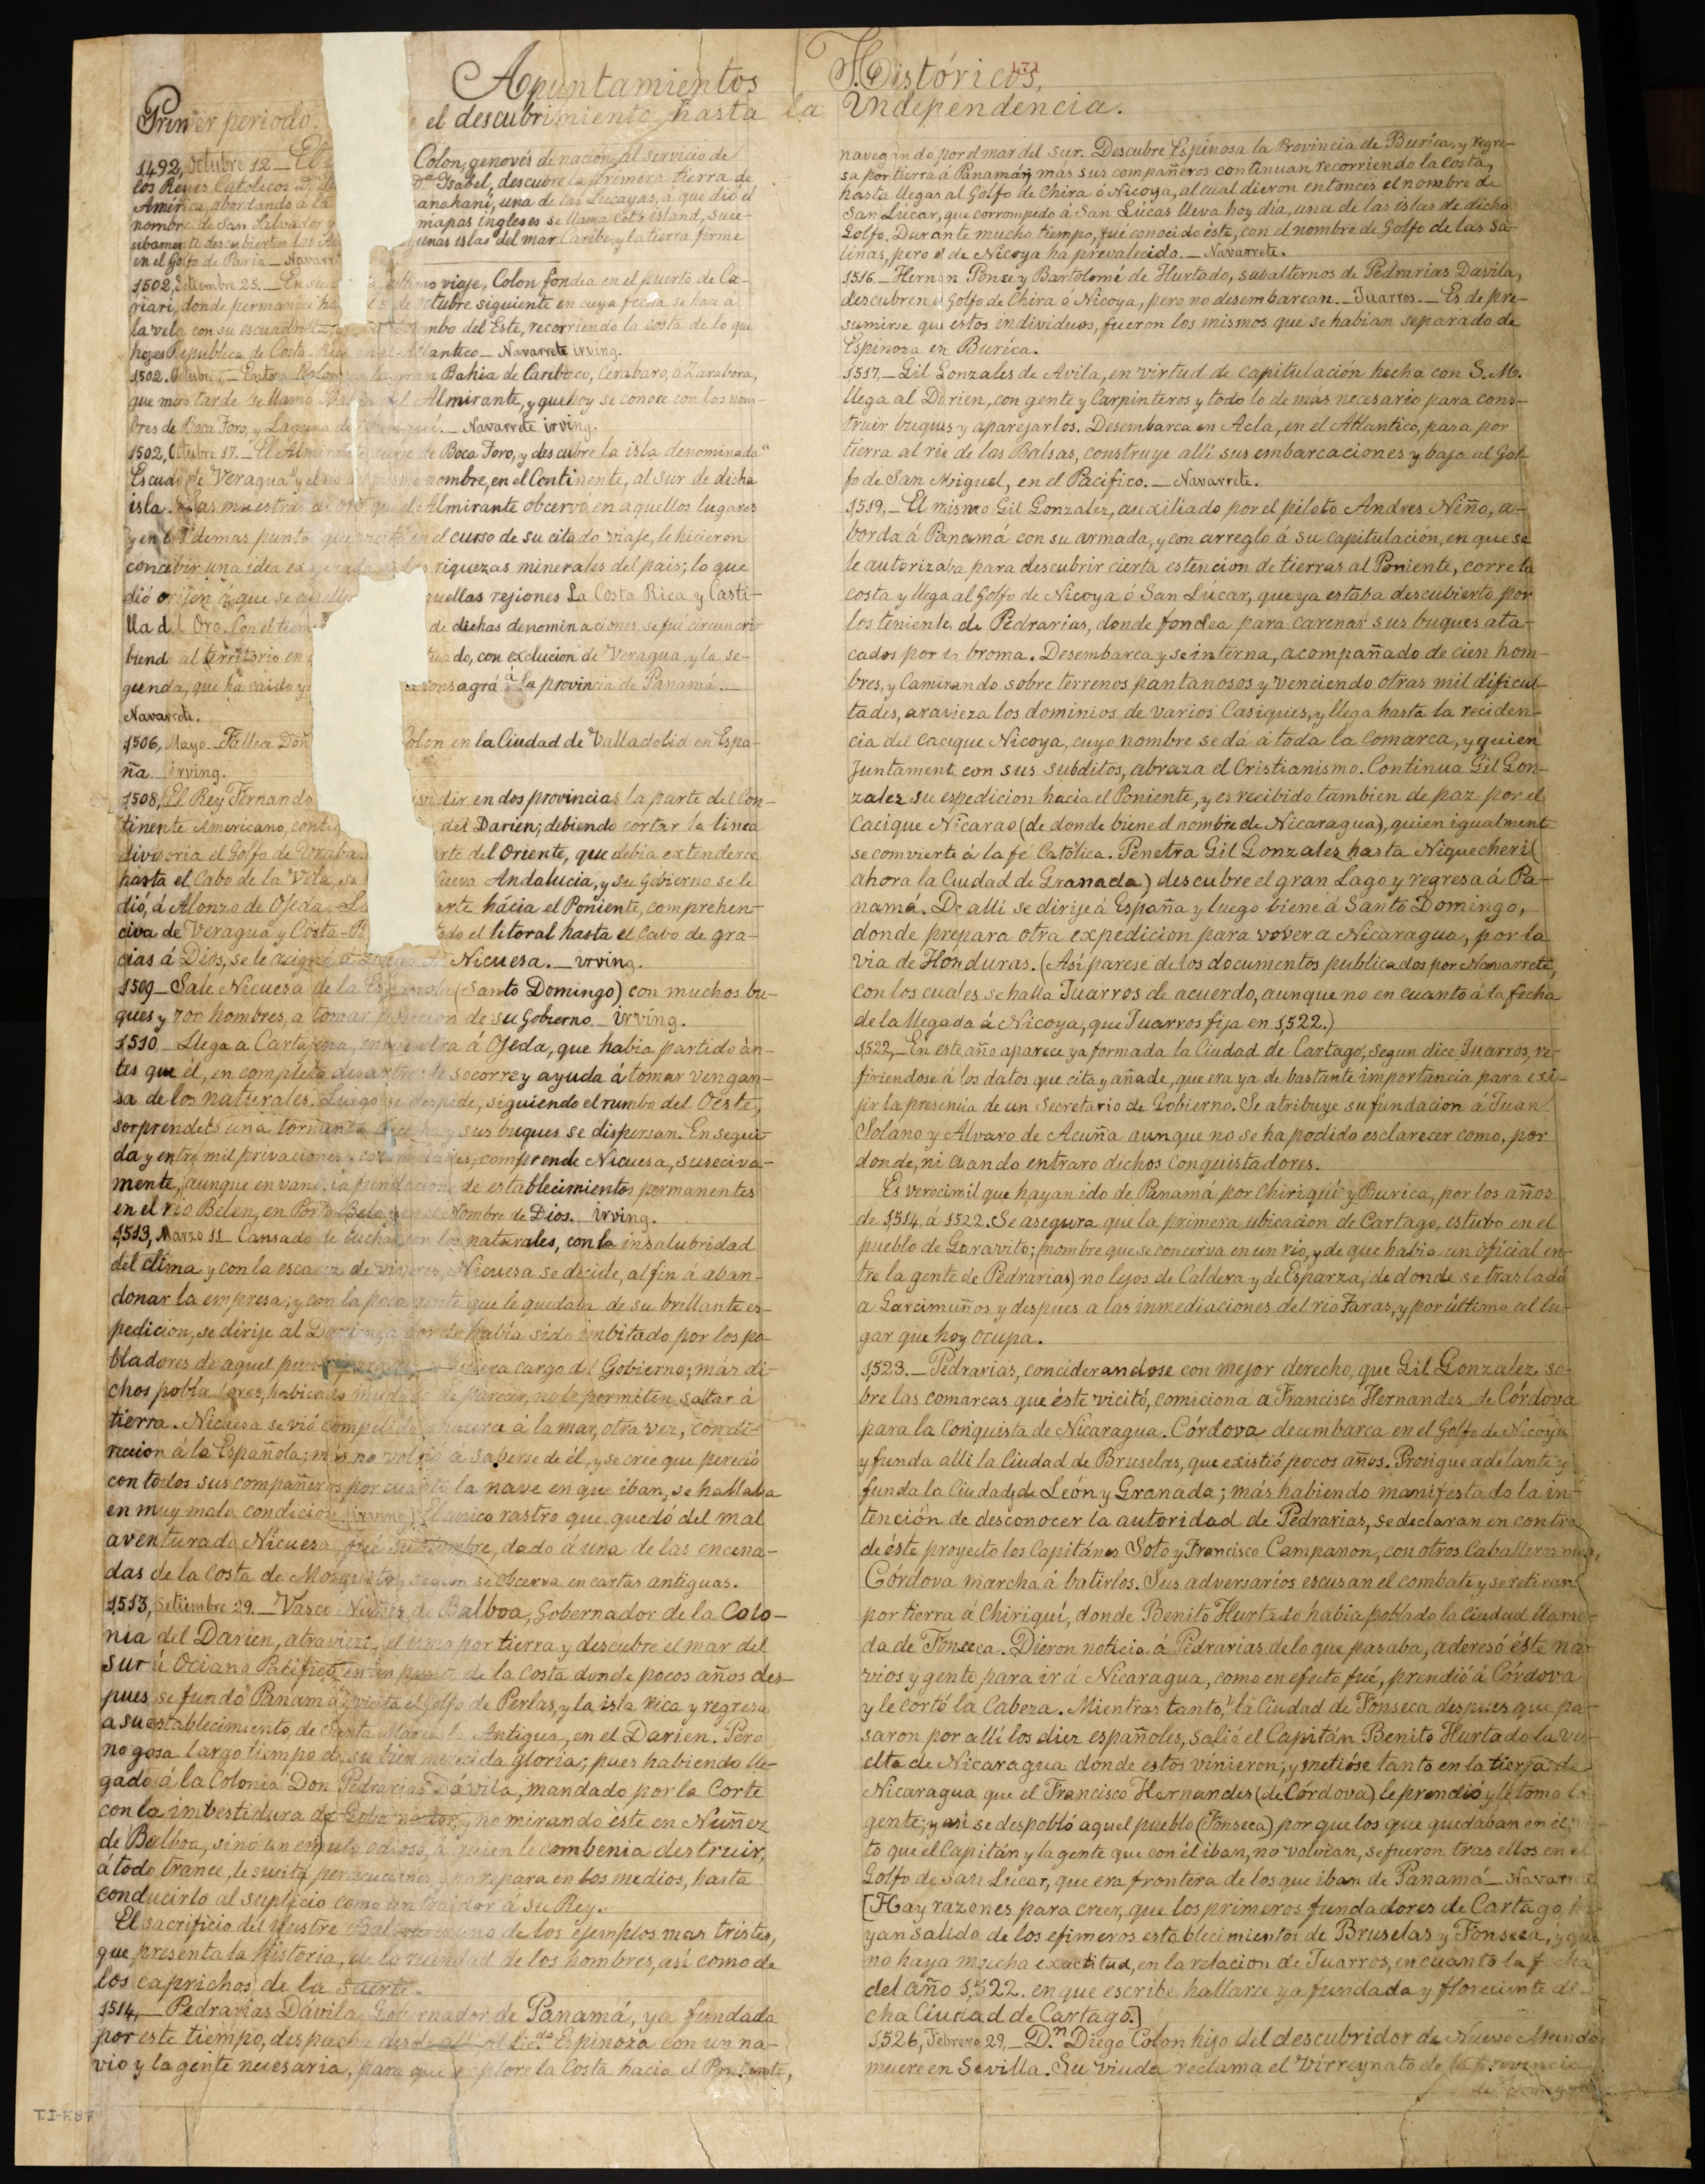 Apuntamientos Históricos,
171
Primer periodo. el descubrimiento hasta la Independencia.
1492, Octubre 12 _ El Colon, genovés de nacion, al servicio de
los Reyes Catolicos D. Dª Isabel, descubre la primera tierra de
América, abordando á la anahani, una de las Lucayas, a que dió el
nombre de San Salvador y mapas ingleses se llama Cat's island, suce-
sibamente descubiertos las unas islas del mar Caribe, y la tierra firme
en el Golfo de Paria _ Navarr
1502, Setiembre 25. _ En su ultimo viaje, Colon fondea en el puerto de Ca-
riari, donde permanece ha 5 de octubre siguiente en cuya fecha se hace a
la vela con su escuadra rumbo del Este, recorriendo la costa de lo que
hoy es Republica de Costa-Rica en el Atlantico _ Navarrete irving.
1502. Octubre, _ Colon la gran Bahia de Cariboco, Cerabaro, ó Zarabora,
que mas tarde se llamo Ba del Almirante, y que hoy se conoce con los nom-
bres de Boca Toro, y Laguna de Chiriqui. _ Navarrete irving.
1502, Octubre 17. _ El Almirante surje de Boca Toro, y descubre la isla denominada "
Escudo de Veragua" y el rio del mismo nombre, en el Continente, al sur de dicha
isla. Las muestras de oro que el Almirante obcervó en aquellos lugares
y en los demas puntos que visitó en el curso de su citado viaje, le hicieron
concebir una idea exajerada de las riquezas minerales del pais; lo que
dió orijen á que se apelli quellas rejiones La Costa Rica y Casti-
lla del Oro. Con el tiem de dichas denominaciones, se fué circuncri-
biendo al territorio en tuado, con exclucion de Veragua, y la se-
gunda, que ha caido y consagrá á la provincia de Panamá. _
Navarrete.
1506, Mayo _ Fallece Don Colon en la Ciudad de Valladolid en Espa-
ña _ irving.
1508, El Rey Fernando ividir en dos provincias la parte del Con-
tinente Americano, contig del Darien; debiendo cortar la linea
divisoria el Golfo de Uraba. rte del Oriente, que debia extenderce
hasta el Cabo de la Vela, se Nueva Andalucia, y su Gobierno se le
dió, á Alonzo de Ojeda. La arte hácia el Poniente, comprehen-
civa de Veragua y Costa-R todo el litoral hasta el Cabo de gra-
cias á Dios, se le asignó a Diego de Nicuesa. _ irving.
1509 _ Sale Nicuesa de la Española (Santo Domingo) con muchos bu-
ques y 700 hombres, a tomar posecion de su Gobierno _ irving.
1510 _ Llega a Cartajena, encuentra á Ojeda, que habia partido án-
tes que él, en completo desastre: le socorre y ayuda á tomar vengan-
sa de los naturales. Luego se despide, siguiendo el rumbo del Oeste,
sorprendelo una tormenta y sus buques se dispersan. En segui-
da y entre mil privaciones y calamidades, comprende Nicuesa, suseciva-
mente, aunque en vano la fundacion de establecimientos permanentes
en el rio Belen, en Porto Belo y en el Nombre de Dios. irving.
1513, Marzo 11 _ Cansado de luchar con los naturales, con la insalubridad
del clima y con la escacez de viveres, Nicuesa se decide, al fin á aban-
donar la empresa; y con la poca gente que le quedaba de su brillante es-
pedicion, se dirije al Darien, a donde habia sido imbitado por los po-
bladores de aquel punto, para que era cargo del Gobierno; más di-
chos pobladores, habiendo mudado de parecer, no le permiten saltar á
tierra. Nicuesa se vió compelido a hacerce á la mar, otra vez, con di-
reccion á la Española; más no volvió á saberse de él, y se cree que pereció
con todos sus compañeros por cuanto la nave en que iban, se hallaba
en muy mala condicion (irving) El unico rastro que quedó del mal
aventurado Nicuesa, fué su nombre, dado á una de las encena-
das de la Costa de Mosquitos, segun se obcerva en cartas antiguas.
1513, Setiembre 29. _ Vasco Nuñes de Balboa, Gobernador de la Colo-
nia del Darien, atravieza el ismo por tierra y descubre el mar del
sur ú Ociano Pacifico, en un punto de la costa donde pocos años des-
pues se fundó Panamá; vicita el golfo de Perlas, y la isla rica y regresa
a su establecimiento, de Santa Maria la Antigua, en el Darien. Pero
no gosa largo tiempo de su bien merecida gloria; pues habiendo lle-
gado á la Colonia Don Pedrarias Dávila, mandado por la Corte
con la imbestidura de Gobernador, y no mirando éste en Nuñez
de Balboa, sinó un emulo odioso, a quien le combenia destruir,
á todo trance, le suscita persecuciones y no repara en los medios, hasta
conducirlo al suplicio como un traidor á su Rey.
El sacrificio del ilustre Balboa es uno de los ejemplos mas tristes,
que, presenta la historia, de la ruindad de los hombres, así como de
los caprichos de la suerte.
1514, _ Pedrarias Dávila, Gobernador de Panamá, ya fundada
por este tiempo, despacha desde allí al Licdo Espinoza con un na-
vio y la gente necesaria, para que explore la Costa hacia el Poniente,
navegando por el mar del Sur. Descubre Espinosa la Provincia de Burica, y regre-
sa por tierra á Panamá; más sus compañeros continuan recorriendo la costa,
hasta llegar al Golfo de Chira ó Nicoya, al cual dieron entonces el nombre de
San Lúcar, que corrompido á San Lúcas lleva hoy día, una de las islas de dicho
Golfo. Durante mucho tiempo, fué conocido éste, con el nombre de Golfo de las Sa-
linas, pero el de Nicoya ha prevalecido. _ Navarrete.
1516. _ Hernan Ponse y Bartolomé de Hurtado, subalternos de Pedrarias Davila,
descubren el Golfo de Chira ó Nicoya, pero no desembarcan. _ Juarros. _ Es de pre-
sumirse que estos individuos, fueron los mismos que se habian separado de
Espinoza en Burica.
1517. _ Gil Gonzales de Avila, en virtud de capitulación hecha con S. M.
llega al Darien, con gente y Carpinteros y todo lo de más necesario para cons-
truir buques y aparejarlos. Desembarca en Acla, en el Atlantico, pasa por
tierra al rio de las Balsas, construye allí sus embarcaciones y baja al Gol-
fo de San Miguel, en el Pacifico. _ Navarrete.
1519. _ El mismo Gil Gonzalez, auxiliado por el piloto Andres Niño, a-
borda á Panamá con su armada, y con arreglo á su capitulación, en que se
le autorizaba para descubrir cierta estencion de tierras al Poniente, corre la
costa y llega al Golfo de Nicoya ó San Lúcar, que ya estaba descubierto por
los teniente de Pedrarias, donde fondea para carenar sus buques ata-
cados por la broma. Desembarca y se interna, acompañado de cien hom-
bres, y Caminando sobre terrenos pantanosos y venciendo otras mil dificul-
tades, aravieza los dominios de varios Casiques, y llega hasta la reciden-
cia del cacique Nicoya, cuyo nombre se dá á toda la comarca, y quien
Juntament con sus subditos, abraza el Cristianismo. Continua Gil Gon-
zalez su espedicion hacia el Poniente, y es recibido tambien de paz por el
Cacique Nicarao (de donde biene el nombre de Nicaragua), quien igualmente
se comvierte á la fé Católica. Penetra Gil Gonzalez hasta Niquecheri(
ahora la Ciudad de Granada) descubre el gran Lago y regresa á Pa-
namá. De allí se dirije á España y luego biene á Santo Domingo,
donde prepara otra expedicion para vover a Nicaragua, por la
via de Honduras. (Así parese de los documentos publicados por Navarrete,
con los cuales se halla Juarros de acuerdo, aunque no en cuanto á la fecha
de la llegada á Nicoya, que Juarros fija en 1522.)
1522, _ En este año aparece ya formada la Ciudad de Cartago, segun dice Juarros, re-
firiendose á los datos que cita y añade, que era ya de bastante importancia para exi-
jir la presencia de un Secretario de Gobierno. Se atribuye su fundacion á Juan
Solano y Alvaro de Acuña aunque no se ha podido esclarecer como, por
donde, ni cuando entraro dichos conquistadores.
Es verocimil que hayan ido de Panamá por Chiriquí y Burica, por los años
de 1514 á 1522. Se asegura que la primera ubicacion de Cartago, estubo en el
pueblo de Garavito; (nombre que se concerva en un rio, y de que habia un oficial en-
tre la gente de Pedrarias) no lejos de Caldera y de Esparza, de donde se trasladó
a Garcimuños y despues a las inmediaciones del rio Taras, y por último al lu-
gar que hoy ocupa.
1523. _ Pedrarias, conciderandose con mejor derecho, que Gil Gonzalez so-
bre las comarcas que éste vicitó, comiciona a Francisco Hernandes de Córdova
para la conquista de Nicaragua. Córdova decembarca en el Golfo de Nicoya
y funda alli la Ciudad de Bruselas, que existió pocos años. Prosigue adelante y
funda la Ciudad de León y Granada; más habiendo manifestado la in-
tención de desconocer la autoridad de Pedrarias, se declaran en contra
de éste proyecto los Capitánes Soto y Francisco Campanon, con otros Caballeros mas,
Córdova marcha á batirlos. Sus adversarios escusan el combate y se retiran
por tierra á Chiriquí, donde Benito Hurtado habia poblado la Ciudad llama-
da de Fonseca. Dieron noticia á Pedrarias de lo que pasaba, aderesó éste na-
vios y gente para ir á Nicaragua, como en efecto fué, prendió á Córdova
y le cortó la Cabeza. Mientras tanto, "la Ciudad de Fonseca despues que pa-
saron por allí los diez españoles, salió el Capitán Benito Hurtado la vu-
elta de Nicaragua donde estos vinieron; y metióse tanto en la tierra de
Nicaragua que el Francisco Hernandes (de Córdova) le prendió y le tomo la
gente; y así se despobló aquel pueblo (Fonseca) por que los que quedaban en él;
to que el Capitán y la gente que con él iban, no volvian, se fueron tras ellos en el
Golfo de San Lucar, que era frontera de los que iban de Panamá _ Navarrete
[Hay razones para creer, que los primeros fundadores de Cartago, ha-
yan salido de los efimeros establecimientos de Bruselas y Fonseca, y que
no haya mucha exactitud, en la relacion de Juarros, en cuanto la fecha
del año 1522. en que escribe hallarse ya fundada y floreciente di-
cha Ciudad de Cartago.]
1526, Febrero 29, _ Dn Diego Colon hijo del descubridor de Nuevo Mundo
muere en Sevilla. Su viuda reclama el Virreynato de la provincia
T.I-F.87